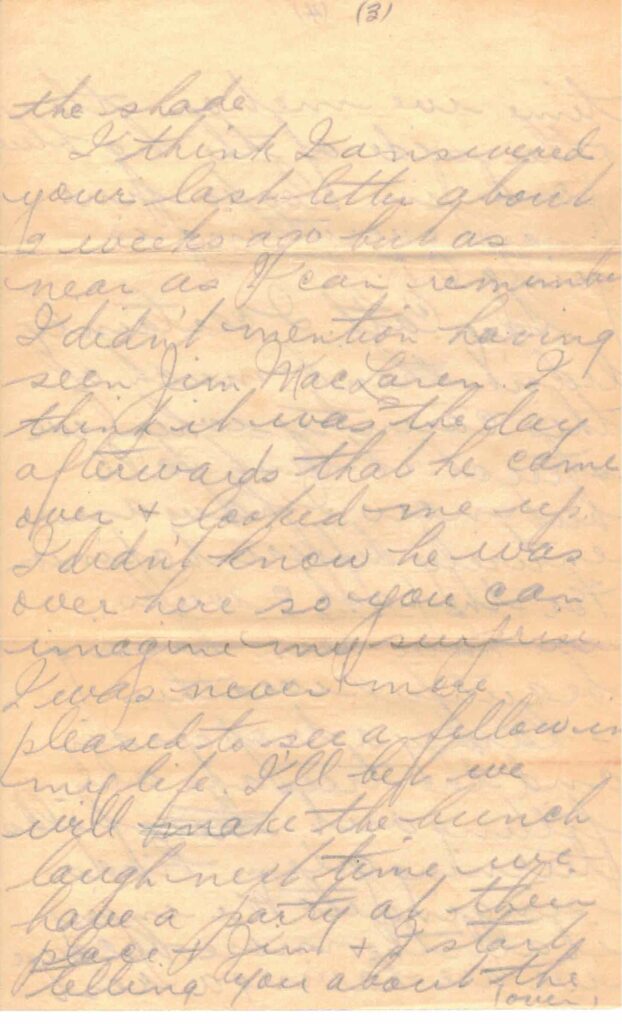 (3)
the shade
I think I answered
your last letter about
2 weeks ago but as
near as I can remember
I didn't mention having
seen Jim MacLaren. I
think it was the day
afterwards that he came
over + looked me up.
I didn't know he was
over here so you can
imagine my surprise
I was never more
pleased to see a fellow in
my life. I'll bet we
will make the bunch
laugh next time we
have a party at their
place + Jim + I start
telling you about the
(over)